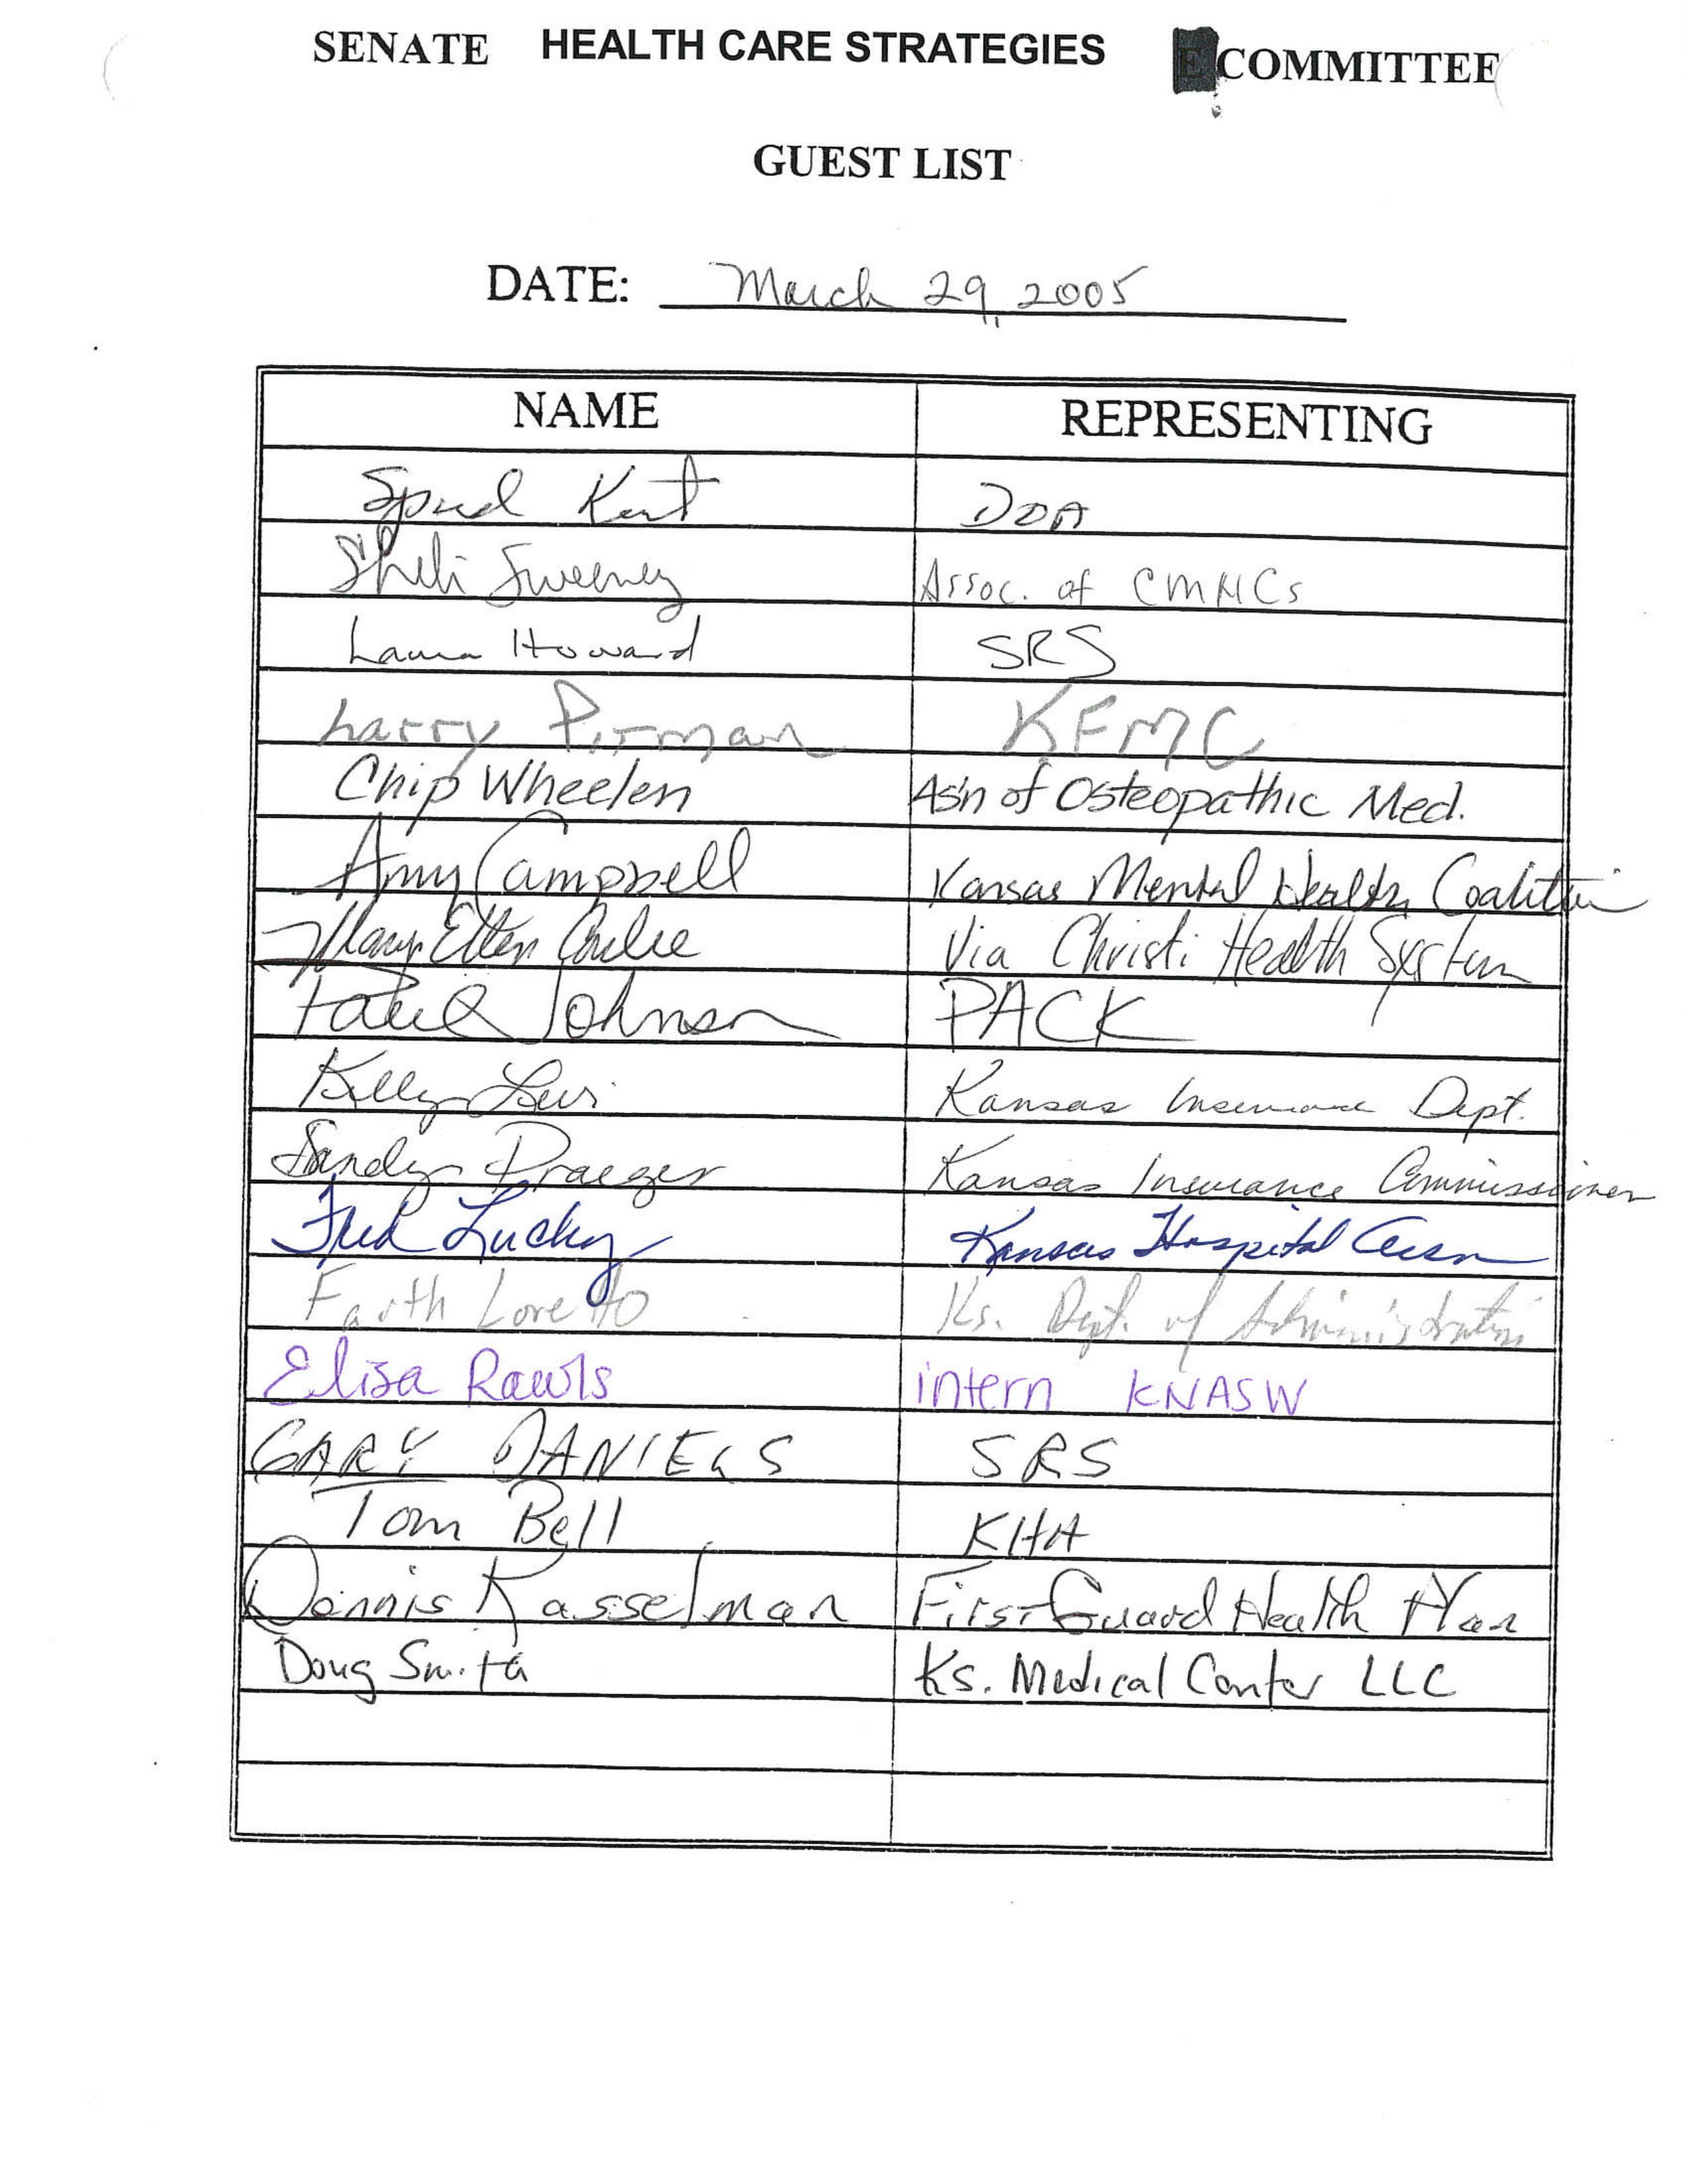 SENATE HEALTH CARE STRATEGIES E COMMITTEE
GUEST LIST
DATE: March 29, 2005
NAME REPRESENTING
Spud Kent DOA
Sheli Sweeney Assoc. of CMHCs
Laura Howard SRS
Larry Pitman KFMC
Chip Wheelen Ass'n of Osteopathic Med.
Amy Campbell Kansas Mental Health Coalition
Mary Ellen Via Christi Health System
Paul Johnson PACK
Kansas Insurance Dept.
Sandy Praeger Kansas Insurance Commissioner
Fred Lucky Kansas Hospital Assn
Faith Loretto Ks. Dept. of Administration
Elisa Rawls intern KNASW
GARY DANIELS SRS
Tom Bell KHA
Dennis Kasselman FirstGuard Health Plan
Doug Smith Ks. Medical Center LLC